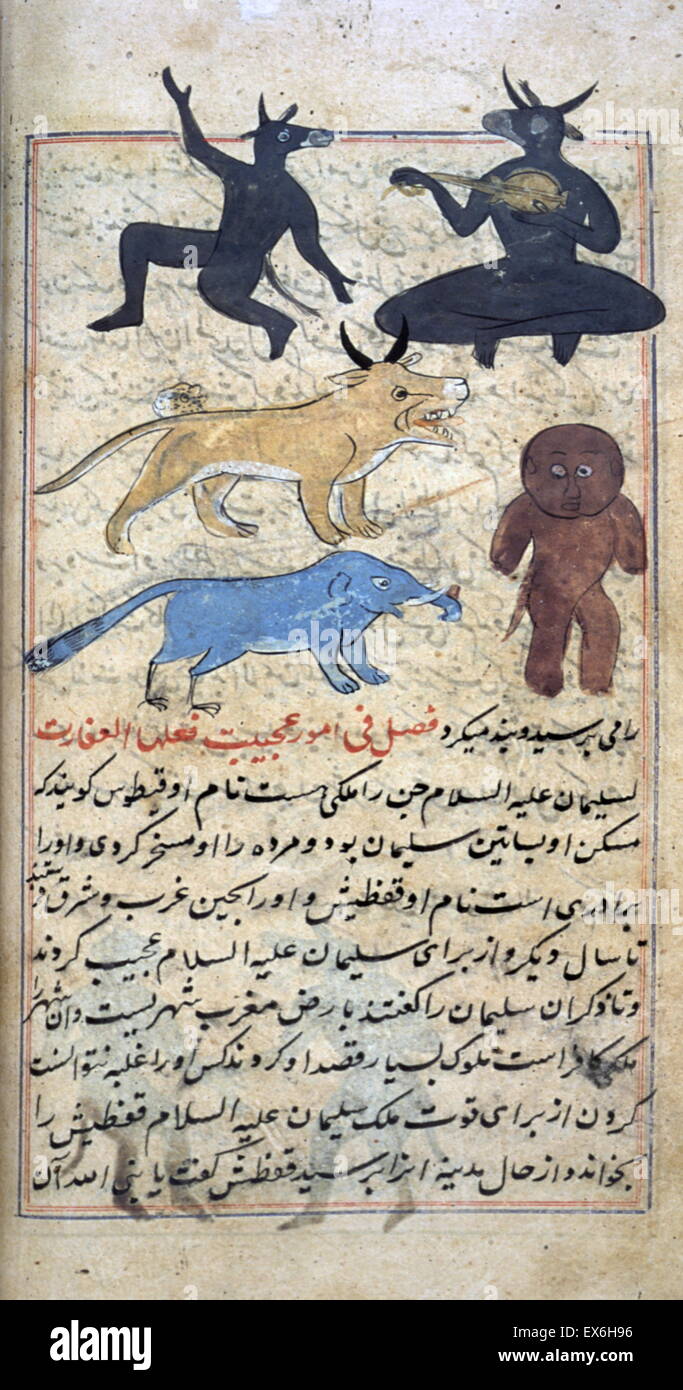 رامی پرسید و پند میکرد فصل فی امور عجیبت فعلها العفاریت
لسلیمان علیه السلام جن را ملکی هست نام او قیطوس کویند که
مسکن او بساتین سلیمان بود و مرده را او مسخر کردی و اورا
برادری است نام او قفطیش و اورا بجین غرب و شرق
تا سال دیکر و از برای سلیمان علیه السلام عجیب کردند
سلیمان را کفتند بارض مغرب شهریست و آن شهر را
ملکی کافر است ملوک بسیار قصد او کردند کس او را غلبه نتوانست
کردن از برای قوت ملک سلیمان علیه السلام قفطیش را
بخواند و از حال مدینه پرسید قفطیش کفت یا نبی الله آن
alamy stock photo
EX6H96
www.alamy.com